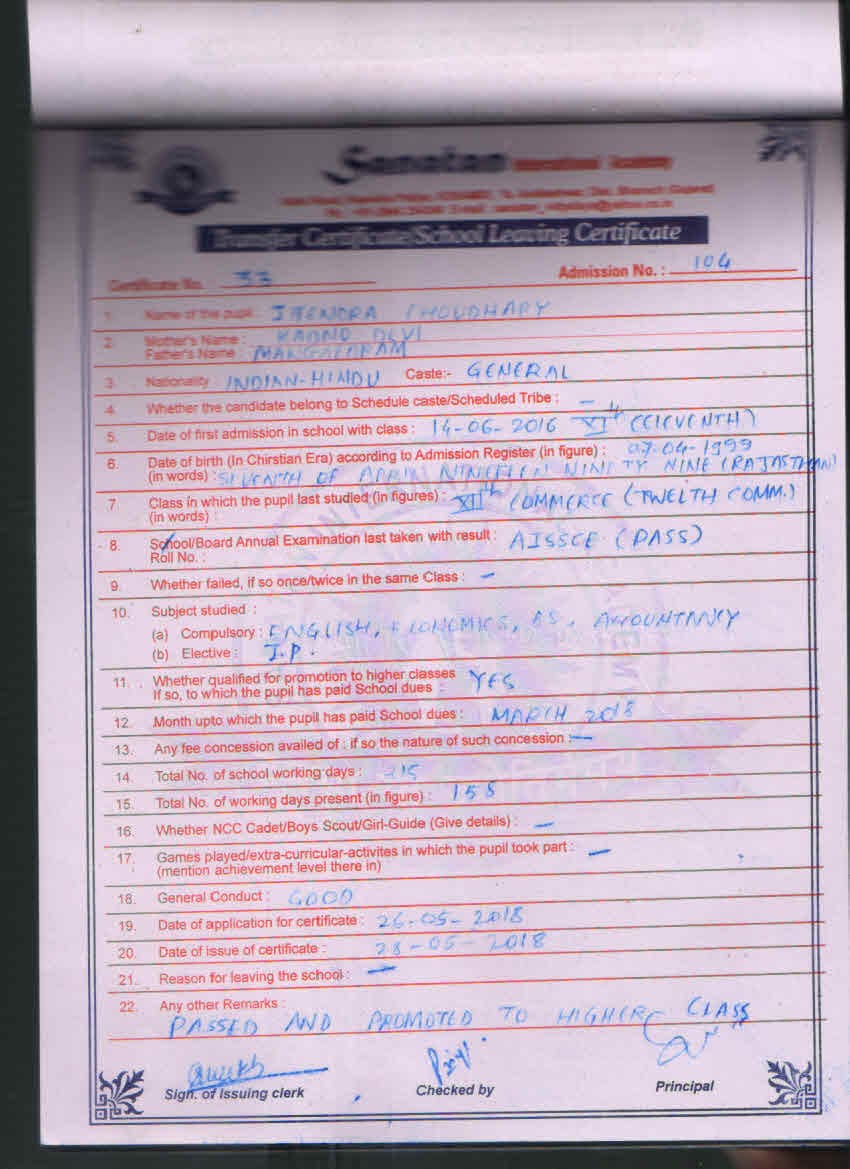 Sanatan International Academy
Transfer Certificate/School Leaving Certificate
Certificate No. 33 Admission No. : 104
1. Name of the pupil : JITENDRA CHOUDHARY
2. Mother's Name : DEVI
Father's Name :
3. Nationality : INDIAN-HINDU Caste:- GENERAL
4. Whether the candidate belong to Schedule caste/Scheduled Tribe : -
5. Date of first admission in school with class : 14-06-2016 XIth (ELEVENTH)
6. Date of birth (In Chirstian Era) according to Admission Register (in figure) : 07-04-1999
(in words) : SEVENTH OF APRIL NINETEEN NINITY NINE (RAJASTHAN)
7 Class in which the pupil last studied (in figures) : XIIth COMMERCE (TWELTH COMM.)
(in words) :
8. School/Board Annual Examination last taken with result : AISSCE (PASS)
Roll No. :
9. Whether failed, if so once/twice in the same Class : -
10. Subject studied :
(a) Compulsory : ENGLISH, ECONOMICS, BS, ACCOUNTANCY
(b) Elective : I.P.
11. Whether qualified for promotion to higher classes YES
If so, to which the pupil has paid School dues :
12. Month upto which the pupil has paid School dues : MARCH 2018
13. Any fee concession availed of : if so the nature of such concession : -
14. Total No. of school working days : 215
15. Total No. of working days present (in figure) : 158
16. Whether NCC Cadet/Boys Scout/Girl-Guide (Give details) : -
17. Games played/extra-curricular-activites in which the pupil took part : -
(mention achievement level there in)
18. General Conduct : GOOD
19. Date of application for certificate : 26-05-2018
20. Date of issue of certificate : 28-05-2018
21. Reason for leaving the school : -
22. Any other Remarks :
PASSED AND PROMOTED TO HIGHER CLASS
Sign. of Issuing clerk Checked by Principal